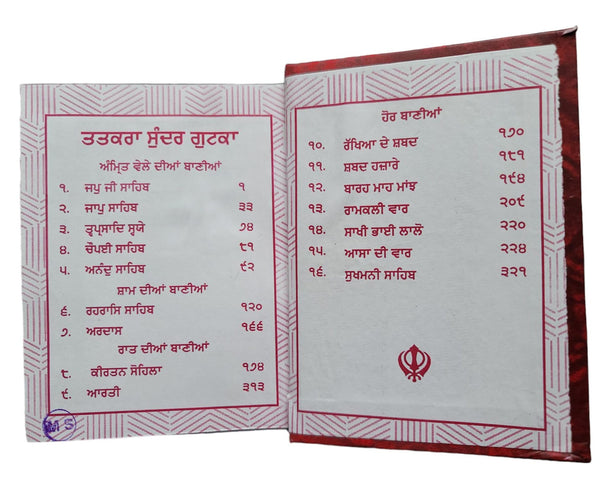 ਤਤਕਰਾ ਸੁੰਦਰ ਗੁਟਕਾ
ਅੰਮ੍ਰਿਤ ਵੇਲੇ ਦੀਆਂ ਬਾਣੀਆਂ
੧. ਜਪੁ ਜੀ ਸਾਹਿਬ ੧
੨. ਜਾਪੁ ਸਾਹਿਬ ੩੩
੩. ਤ੍ਵਪ੍ਰਸਾਦਿ ਸ੍ਵਯੇ ੭੪
੪. ਚੌਪਈ ਸਾਹਿਬ ੮੧
੫. ਅਨੰਦੁ ਸਾਹਿਬ ੯੨
ਸ਼ਾਮ ਦੀਆਂ ਬਾਣੀਆਂ
੬. ਰਹਰਾਸਿ ਸਾਹਿਬ ੧੨੦
੭. ਅਰਦਾਸ ੧੬੬
ਰਾਤ ਦੀਆਂ ਬਾਣੀਆਂ
੮. ਕੀਰਤਨ ਸੋਹਿਲਾ ੧੭੪
੯. ਆਰਤੀ ੩੧੩
M S
ਹੋਰ ਬਾਣੀਆਂ
੧੦. ਰੱਖਿਆ ਦੇ ਸ਼ਬਦ ੧੭੦
੧੧. ਸ਼ਬਦ ਹਜ਼ਾਰੇ ੧੮੧
੧੨. ਬਾਰਹ ਮਾਹ ਮਾਂਝ ੧੯੪
੧੩. ਰਾਮਕਲੀ ਵਾਰ ੨੦੯
੧੪. ਸਾਖੀ ਭਾਈ ਲਾਲੋ ੨੨੦
੧੫. ਆਸਾ ਦੀ ਵਾਰ ੨੨੪
੧੬. ਸੁਖਮਨੀ ਸਾਹਿਬ ੩੨੧